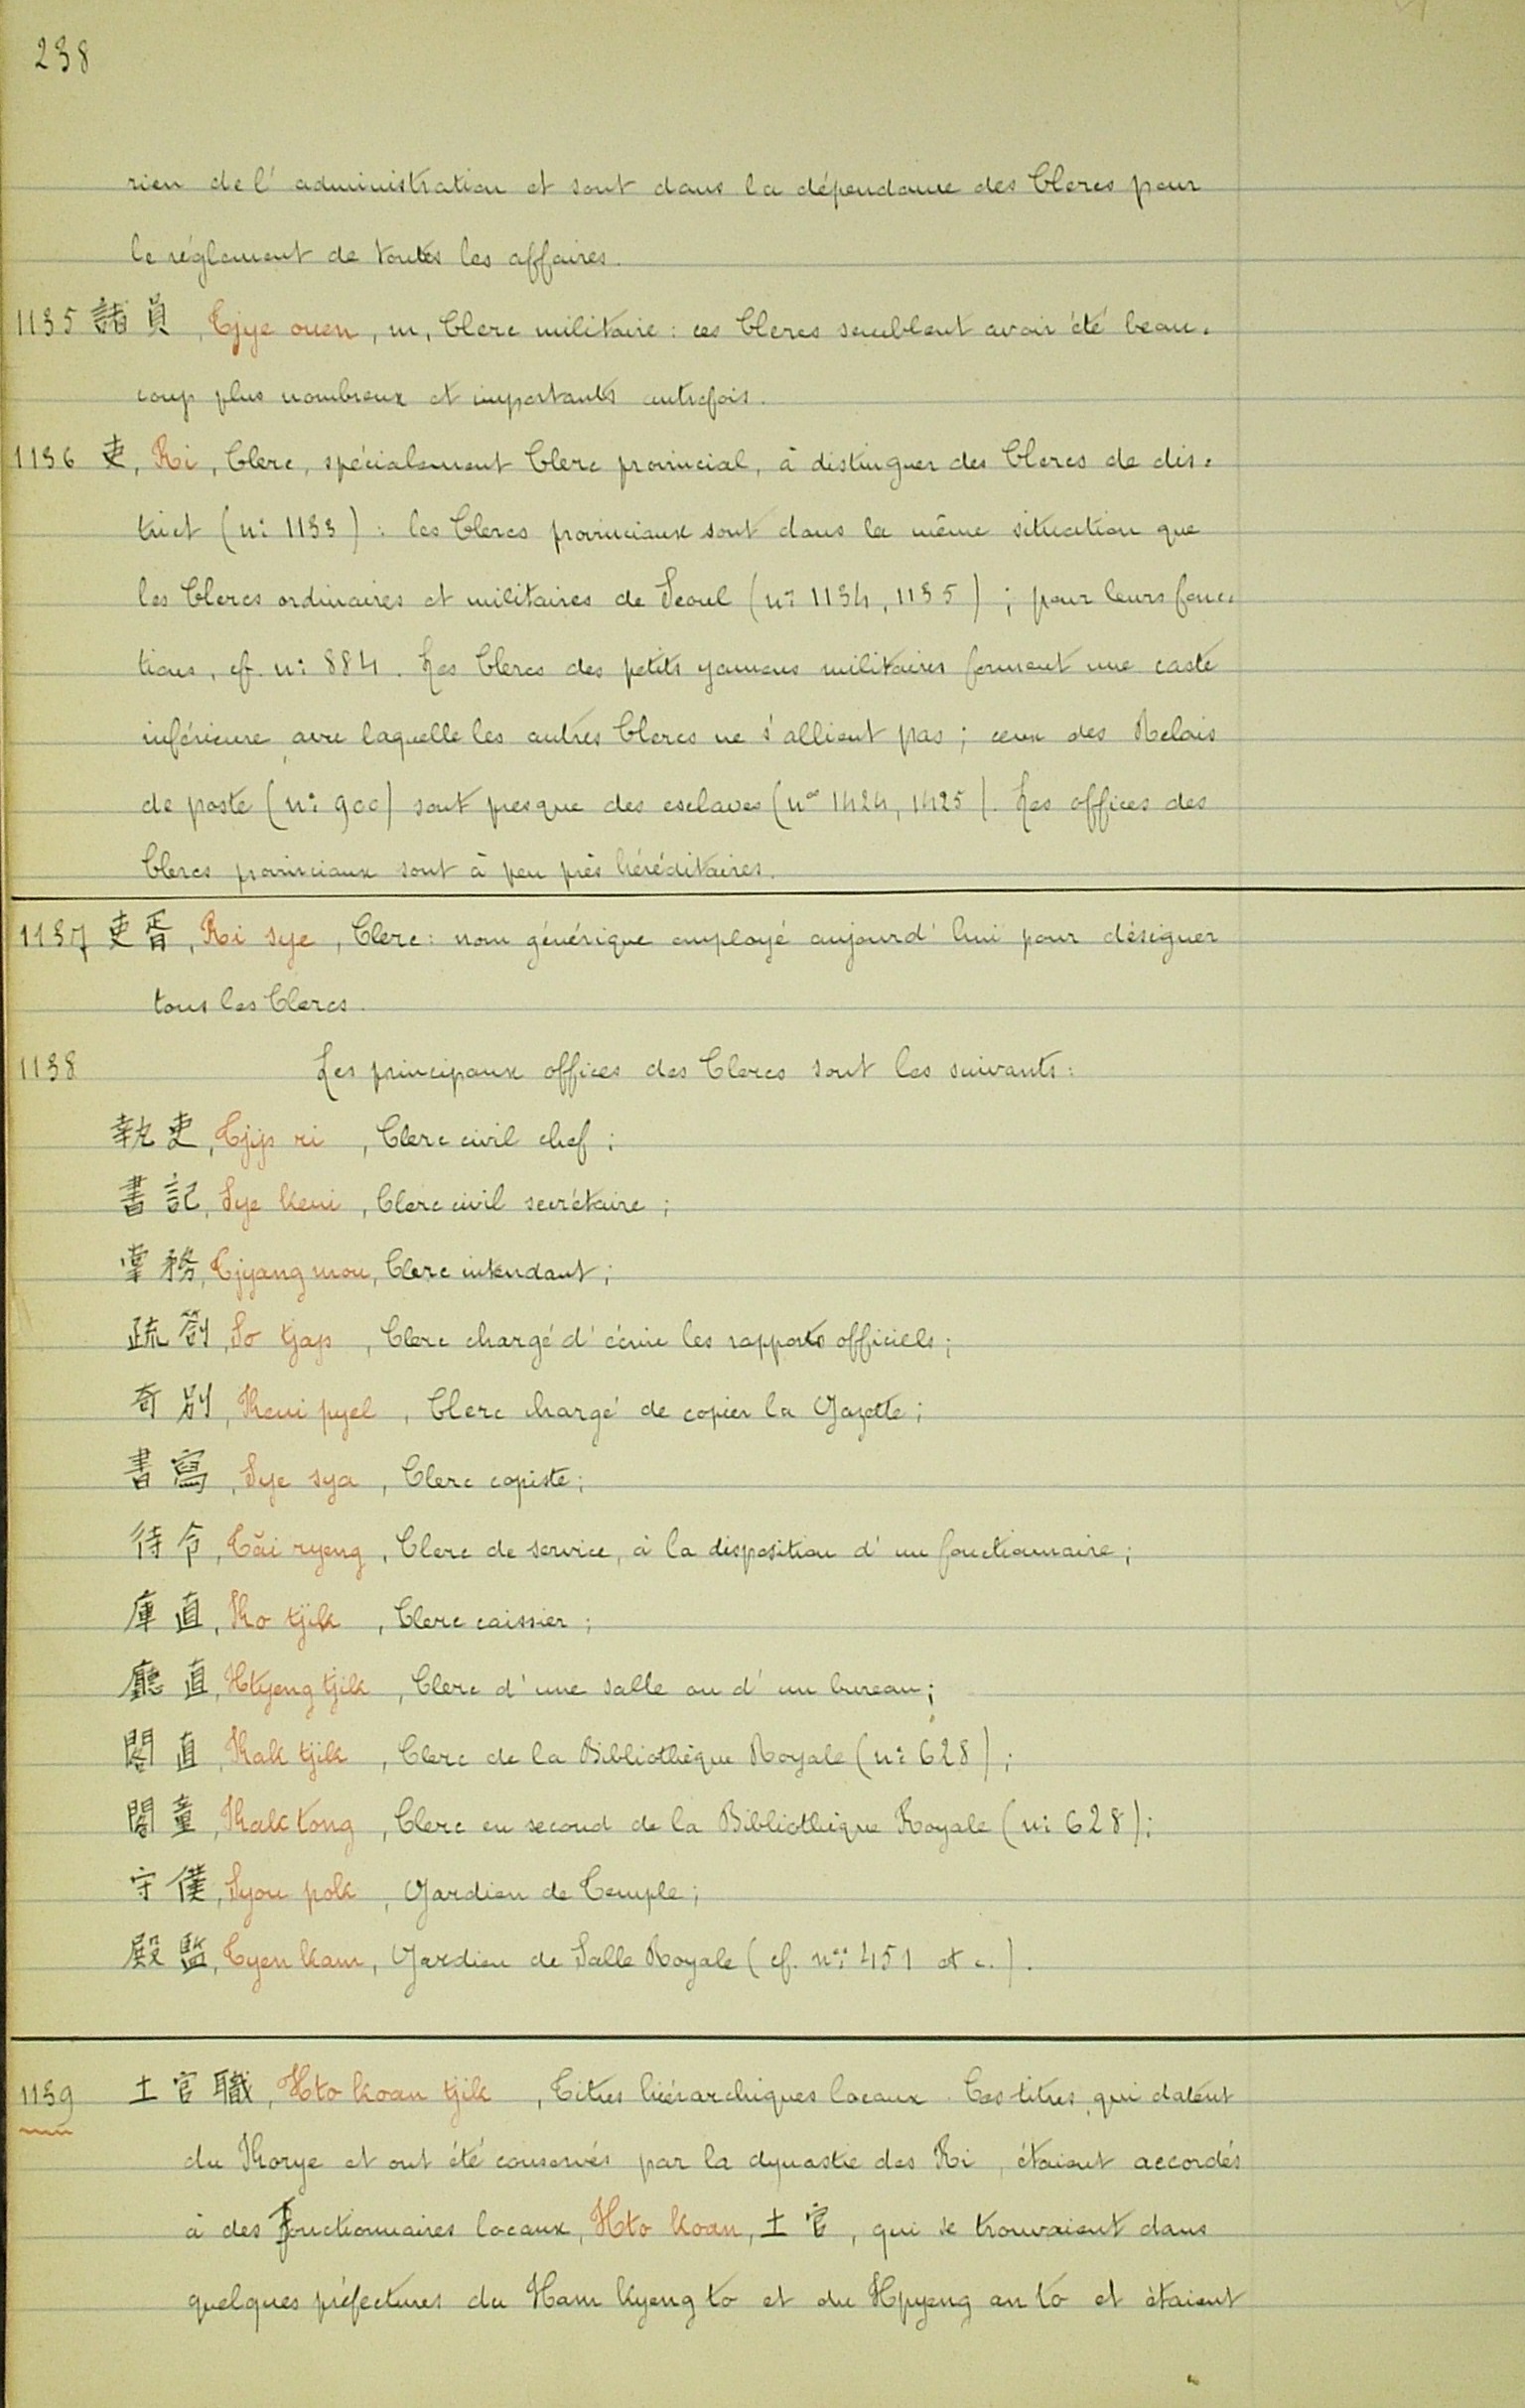 238
rien de l'administration et sont dans la dépendance des Clercs pour
le réglement de toutes les affaires.
1135 諸員, Tjye ouen, m, Clerc militaire : ces Clercs semblent avoir été beau-
coup plus nombreux et importants autrefois.
1136 吏, Ri, Clerc, spécialement Clerc provincial, à distinguer des Clercs de dis-
trict (n: 1133) : les Clercs provinciaux sont dans la même situation que
les Clercs ordinaires et militaires de Seoul (n: 1134, 1135) ; pour leurs fonc-
tions, cf. n: 884. Les Clercs des petits yamens militaires forment une caste
inférieure, avec laquelle les autres Clercs ne s'allient pas ; ceux des Relais
de poste (n: 900) sont presque des esclaves (nos 1424, 1425). Les offices des
Clercs provinciaux sont à peu près héréditaires.
1137 吏胥, Ri sye, Clerc : nom générique employé aujourd'hui pour désigner
tous les Clercs.
1138 Les principaux offices des Clercs sont les suivants :
執吏, Tjip ri, Clerc civil chef ;
書記, Sye keui, Clerc civil secrétaire ;
掌務, Tjyang mou, Clerc intendant ;
疏劄, So tjap, Clerc chargé d'écrire les rapports officiels ;
奇別, Keui pyel, Clerc chargé de copier la Gazette ;
書寫, Sye sya, Clerc copiste ;
待令, Tăi ryeng, Clerc de service, à la disposition d'un fonctionnaire ;
庫直, Ko tjik, Clerc caissier ;
廳直, Htyeng tjik, Clerc d'une salle ou d'un bureau ;
閣直, Kak tjik, Clerc de la Bibliothèque Royale (n: 628) ;
閣童, Kak tong, Clerc en second de la Bibliothèque Royale (n: 628) ;
守僕, Syou pok, Gardien de Temple ;
殿監, Tyen kam, Gardien de Salle Royale (cf. n: 451 et c.).
1139 土官職, Hto koan tjik, Titres hiérarchiques locaux. Ces titres, qui datent
du Korye et ont été conservés par la dynastie des Ri, étaient accordés
à des fonctionnaires locaux, Hto koan, 土官, qui se trouvaient dans
quelques préfectures du Ham kyeng to et du Hpyeng an to et étaient